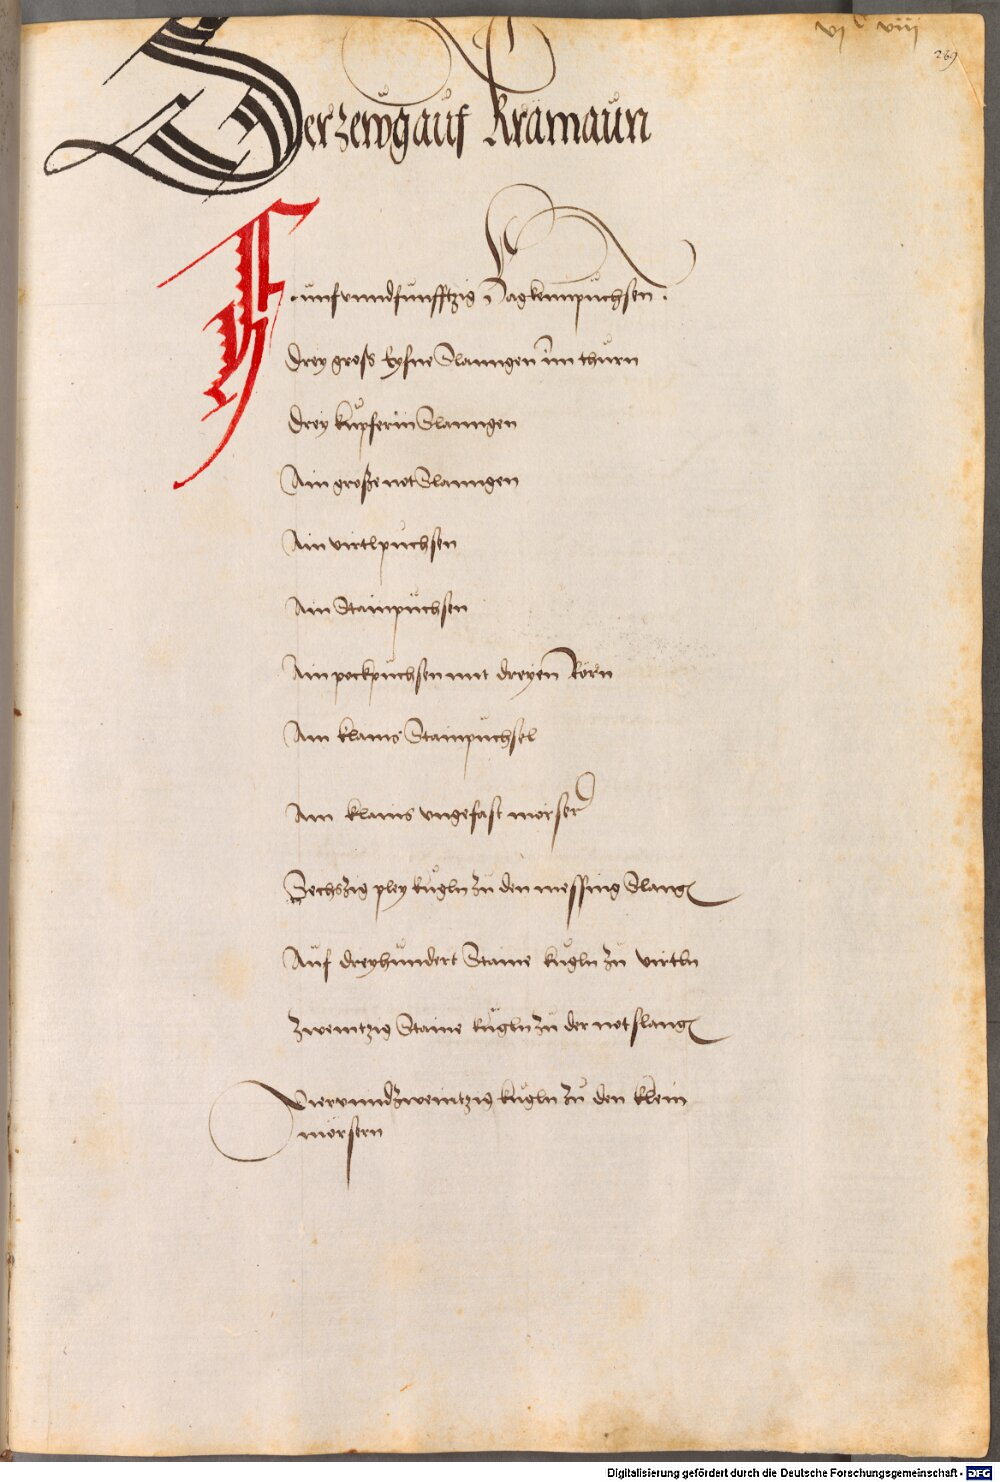 vjc viij
269
Der zewg auf Kramaun
Funfvnndfunfftzig Hagkenpüchsen.
Drey gross Eysne Slanngen im thurn
Drey kupferin Slanngen
Ain große not Slanngen
Ain virtlpuchsen
Ain Stainpüchsen
Ain pockpüchsen mit dreyen Rorn
Ain klains Stainpüchsel
Ain klains vngefast morser
Sechszig pley kugln zu den messing Slang
Auf dreyhundert Staine kugln zu virtln
Zweintzig Staine kugln zu der not slang
Viervnndzweintzig kugln zu den klein
mörsern
Digitalisierung gefördert durch die Deutsche Forschungsgemeinschaft - DFG